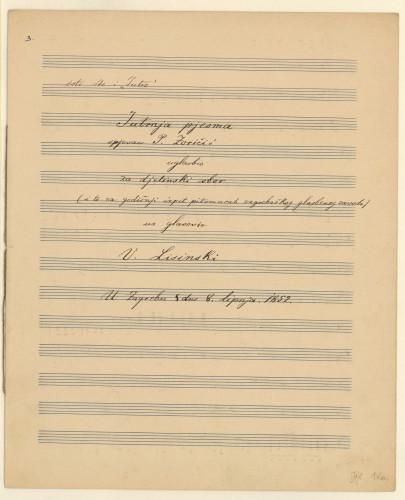 3.
isto što i „Jutro"
Jutrnja pjesma
spjevao P. Zoričić
uglasbio
za djetinski sbor
(i to za godišnji izpit pitomacah zagrebačkog glasbenog zavoda)
uz glasovir
V. Lisinski
U Zagrebu dne 6. lipnja. 1852.